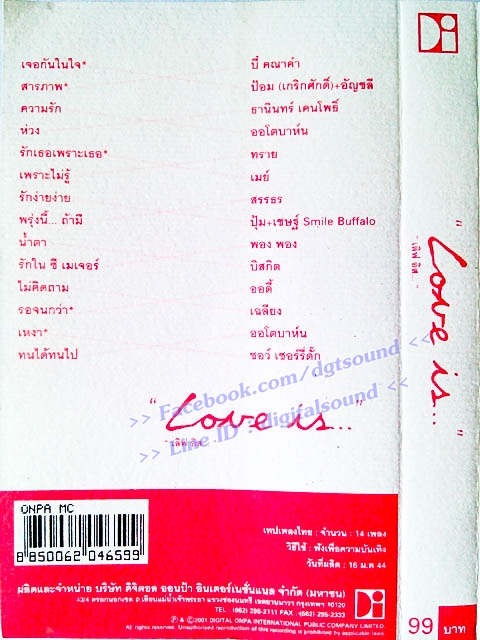 เจอกันในใจ* บี้ คณาคำ
สารภาพ* ป้อม (เกริกศักดิ์)+อัญชลี
ความรัก ธานินทร์ เคนโพธิ์
ห่วง ออโตบาห์น
รักเธอเพราะเธอ* ทราย
เพราะไม่รู้ เมย์
รักง่ายง่าย สรรธร
พรุ่งนี้... ถ้ามี ปุ้ม+เชษฐ์ Smile Buffalo
น้ำตา พอง พอง
รักใน ซี เมเจอร์ บิสกิต
ไม่คิดถาม ออดี้
รอจนกว่า* เฉลียง
เหงา* ออโตบาห์น
ทนได้ทนไป ชอว์ เชอร์รี่ดั๊ก
>> Facebook.com/dgtsound <<
>> Line ID : digitalsound <<
"Love is..."
เลิฟ อิส
ONPA MC
8 850062 046599
เทปเพลงไทย : จำนวน : 14 เพลง
วิธีใช้ : ฟังเพื่อความบันเทิง
วันที่ผลิต : 16 ม.ค 44
ผลิตและจำหน่าย บริษัท ดิจิตอล ออนป้า อินเตอร์เนชั่นแนล จำกัด (มหาชน)
43/4 ตรอกนอกเขต ถ.เลียบแม่น้ำเจ้าพระยา แขวงช่องนนทรี เขตยานนาวา กรุงเทพฯ 10120
TEL. (662) 295-2111 FAX. (662) 295-2333
© 2001 DIGITAL ONPA INTERNATIONAL PUBLIC COMPANY LIMITED.
All Rights Reserved. Unauthorised reproduction of this recording is prohibited by applicable laws
Di
"Love is..."
"เลิฟ อิส..."
99 บาท
Di